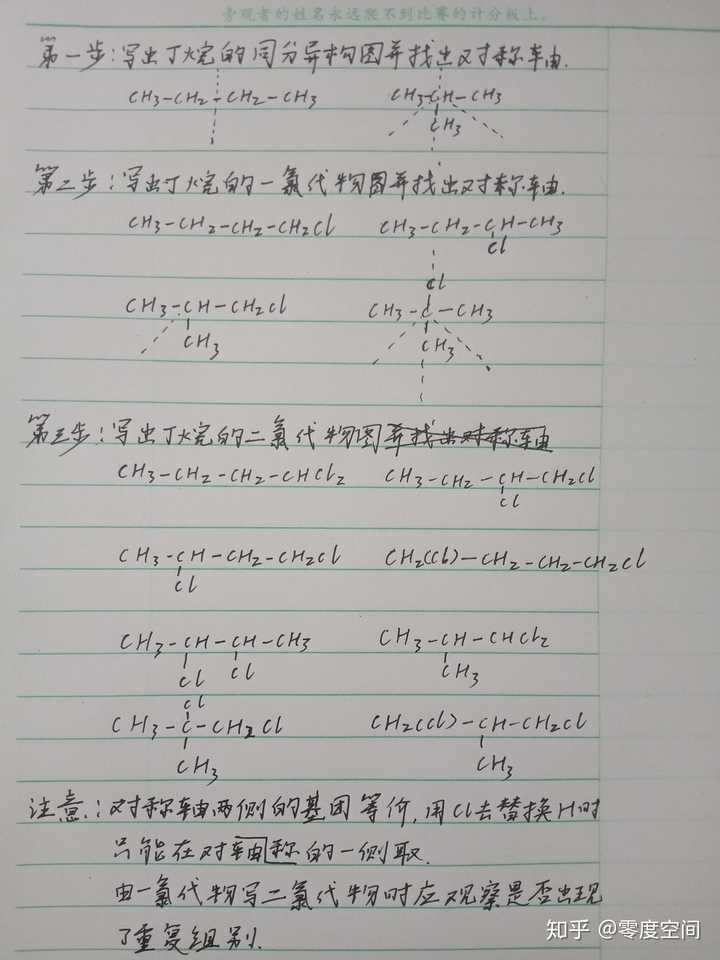 旁观者的姓名永远爬不到比赛的计分板上。
第一步:写出丁烷的同分异构图并找出对称轴.
CH3-CH2-CH2-CH3 CH3-CH-CH3
CH3
第二步:写出丁烷的一氯代物图并找出对称轴.
CH3-CH2-CH2-CH2Cl CH3-CH2-CH-CH3
Cl
Cl
CH3-CH-CH2Cl CH3-C-CH3
CH3 CH3
第三步:写出丁烷的二氯代物图并找出对称轴
CH3-CH2-CH2-CHCl2 CH3-CH2-CH-CH2Cl
Cl
CH3-CH-CH2-CH2Cl CH2(Cl)-CH2-CH2-CH2Cl
Cl
CH3-CH-CH-CH3 CH3-CH-CHCl2
Cl Cl CH3
Cl
CH3-C-CH2Cl CH2(Cl)-CH-CH2Cl
CH3 CH3
注意:对称轴两侧的基团等价,用Cl去替换H时
只能在对轴称的一侧取.
由一氯代物写二氯代物时应观察是否出现
了重复组别.
知乎 @零度空间